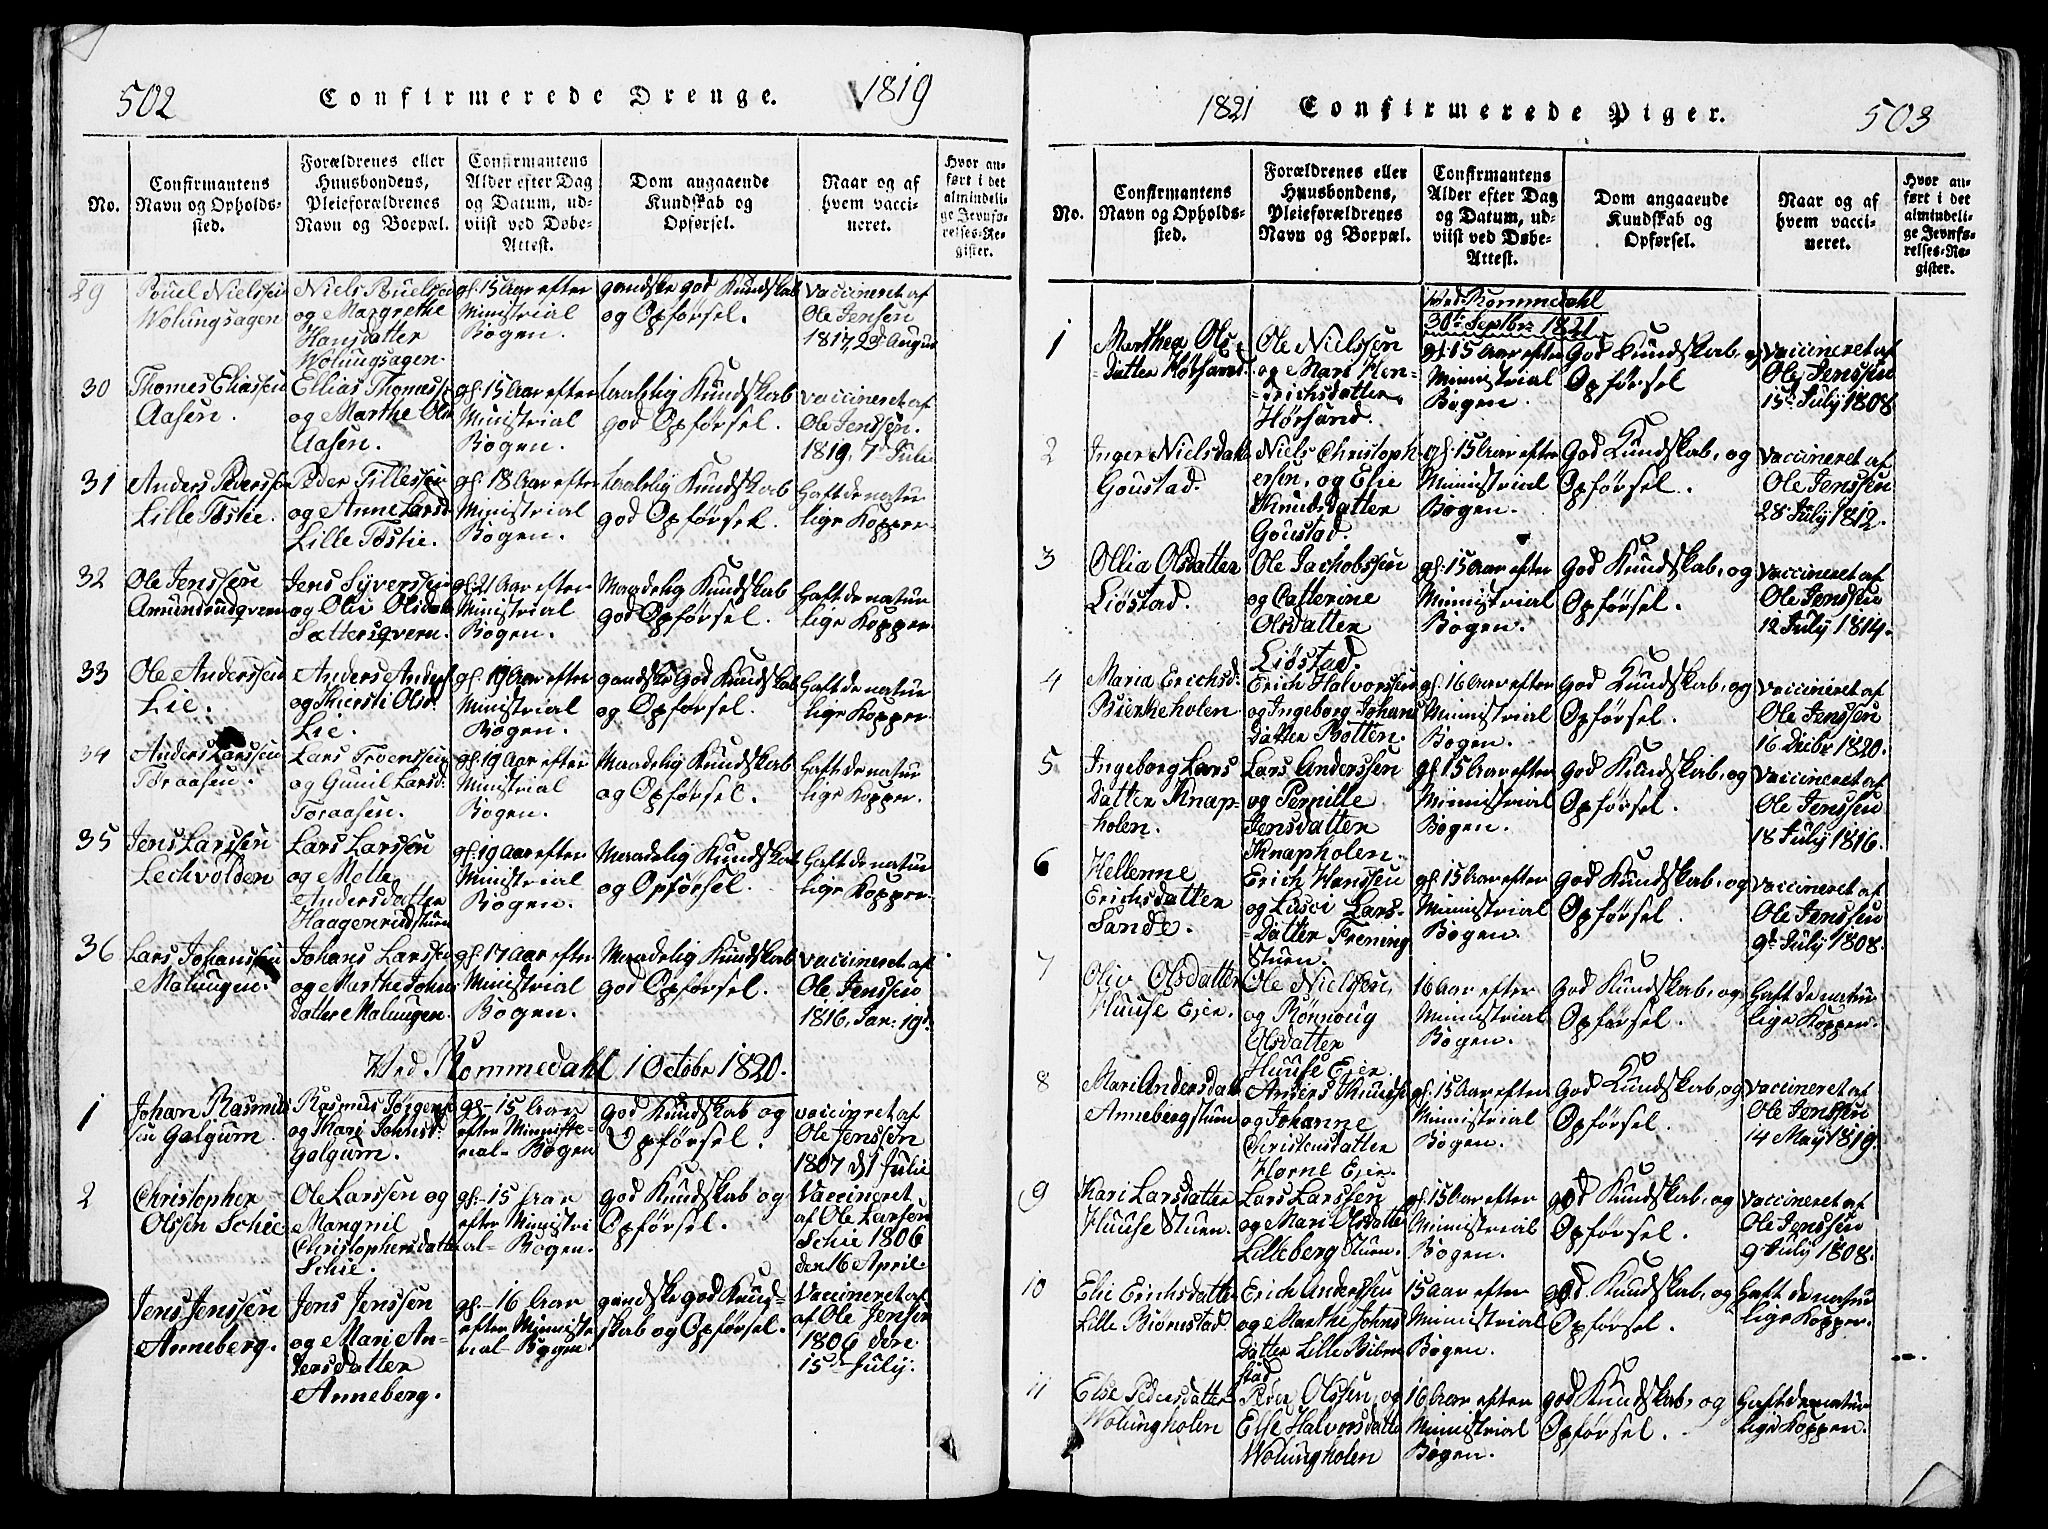 502
Confirmerede Drenge.
1819
No.
Confirmantens
Navn og Opholds-
sted.
Forældrenes eller
Huusbondens,
Pleieforældrenes
Navn og Boepæl.
Confirmantens
Alder efter Dag
og Datum, ud-
viist ved Døbe-
Attest.
Dom angaaende
Kundskab og
Opførsel.
Naar og af
hvem vacci-
neret.
Hvor an-
ført i det
almindeli-
ge Jevnfø-
relses-Re-
gister.
29
Pouel Nielssen
Wolungsagen
Niels Pouelsen
og Margrethe
Hansdatter
Wolungsagen.
gl. 15 Aar efter
Ministrial
Bogen.
gandske god Kundskab
og Opførsel.
Vaccineret af
Ole Jensen
1817, 23 August
30
Thomes Eliassen
Aasen.
Ellias Thomess
og Marthe Olsd
Aasen.
gl. 15 Aar efter
Ministrial
Bogen.
taalelig Kundskab
god Opførsel.
vaccineret af
Ole Jenssen.
1819, 7de Julie
31
Anders Pederssen
Lille Tøstie.
Peder Tillessen
og Anne Larsd
Lille Tøstie.
gl. 18 Aar efter
Ministrial
Bogen.
taalelig Kundskab
god Opførsel.
Haft de natur
lige Kopper.
32
Ole Jenssen
Amundrudqvern
Jens Syverssen
og Oliv Olsdat
Sattersqvern.
gl. 21 Aar efter
Ministrial
Bogen.
Maadelig Kundskab
god Opførsel.
Haft de natur
lige Kopper.
33
Ole Anderssen
Lie.
Anders Anders
og Kiersti Olsd.
Lie.
gl. 19 Aar efter
Ministrial
Bogen.
gandske god Kundskab
og Opførsel.
Haft de natur
lige Kopper.
34
Anders Larssen
Toraasen.
Lars Troenssen
og Gunil Larsd.
Toraasen.
gl. 19 Aar efter
Ministrial
Bogen.
Maadelig Kundskab
og Opførsel.
Haft de natur
lige Kopper.
35
Jens Larssen
Lechvolden
Lars Larssen
og Mette
Andersdatter
Haagenrudstuen
gl. 19 Aar efter
Ministrial
Bogen.
Maadelig Kundskab
og Opførsel.
Haft de natur
lige Kopper.
36
Lars Johanssen
Maluugen.
Johans Larssen
og Marthe Johns
datter Maluugen.
gl. 17 Aar efter
Ministrial
Bogen.
Maadelig Kundskab
god Opførsel.
vaccineret af
Ole Jenssen
1816, Jan: 19d.
Ved Rommedahl 1 Octobr 1820.
1
Johan Rasmus
en Galgum.
Rasmus Jørgens
og Mari Johnsd:
Galgum.
gl- 15 Aar
efter Ministe-
rial- Bogen
god Kundskab og
Opførsel.
vaccinret af
Ole Jenssen
1807 d 1 Julie
2
Christopher
Olsen Schie
Ole Larssen og
Mangnil
Christophersdatter
Schie.
gl- 15 Aar
efter Ministri
al- Bogen.
god Kundskab og
Opførsel.
Vaccineret
af Ole Larsen
Schie 1806
den 16 April.
Jens Jenssen
Anneberg.
Jens Jenssen
og Mari An-
dersdatter
Anneberg.
gl- 16 Aar
efter Ministe
rial- Bogen
gandske god Kund-
skab og Opførsel.
Vaccineret
af Ole Jensen
1806 den
15de July.
1821
Confirmerede Piger.
503
No.
Confirmantens
Navn og Opholds-
sted.
Forældrenes eller
Huusbondens,
Pleieforældrenes
Navn og Boepæl.
Confirmantens
Alder efter Dag
og Datum, ud-
viist ved Døbe-
Attest.
Dom angaaende
Kundskab og
Opførsel.
Naar og af
hvem vacci-
neret.
Hvor an-
ført i det
almindeli-
ge Jevnfø-
relses-Re-
gister.
Ved Rommedahl
30te Septbr 1821.
1
Marthea Ols
datter Hørsand.
Ole Nielssen
og Mari Hen-
drichsdatter
Hørsand.
gl. 15 Aar efter
Ministrial
Bogen.
God Kundskab, og
Opførsel
vaccineret af
Ole Jenssen
15de July 1808
2
Inger Nielsdat
Goustad.
Niels Christoph
ersen, og Elie
Knudsdatter
Goustad.
gl. 15 Aar efter
Ministrial
Bogen.
God Kundskab, og
Opførsel.
vaccineret af
Ole Jenssen
28 July 1812.
3
Ollia Olsdatter
Liøstad.
Ole Jachobssen
og Catterine
Olsdatter
Liøstad.
gl. 15 Aar efter
Ministrial
Bogen.
God Kundskab, og
Opførsel.
vaccineret af
Ole Jenssen
12 July 1814.
4
Maria Erichsd.
Bierkeholen.
Erich Halvorssen
og Ingeborg Johans
datter Botten.
gl. 16 Aar efter
Ministrial
Bogen.
God Kundskab, og
Opførsel.
vaccineret af
Ole Jenssen
16 Decbr 1820.
5
Ingeborg Lars
datter Knap-
holen.
Lars Anderssen
og Pernille
Jensdatter
Knapholen.
gl. 15 Aar efter
Ministrial
Bogen.
God Kundskab, og
Opførsel.
vaccineret af
Ole Jenssen
18 July 1816.
6
Hellenne
Erichsdatter
Sande.
Erich Hanssen
og Lusci Lars-
datter Frening
Stuen.
gl. 15 Aar efter
Ministrial
Bogen.
God Kundskab, og
Opførsel.
vaccineret af
Ole Jenssen
9de July 1808.
7
Oliv Olsdatter
Huuse Ejer.
Ole Nielssen,
og Rønnoug
Olsdatter
Huuse Ejer.
16 Aar efter
Ministrial
Bogen.
God Kundskab, og
Opførsel.
Haft de natur
lige Kopper.
8
Mari Andersdat
Anneberg stuen
Anders Knuds
og Johanne
Christensdatter
Horne Ejer.
gl. 15 Aar efter
Ministrial
Bogen.
God Kundskab, og
Opførsel.
vaccineret af
Ole Jenssen
14 May 1819.
9
Kari Larsdatter
Huuse Stuen.
Lars Larssen
og Mari Olsdatter
Lilleberg Stuen.
gl. 15 Aar efter
Ministrial
Bogen.
god Kundskab, og
Opførsel.
vaccineret af
Ole Jenssen
9 July 1808.
10
Elie Erichsdatter
Lille Biørnstad.
Erich Anderssen
og Marthe Johns
datter Lille Biørn
stad
15 Aar efter
Ministrial
Bogen.
god Kundskab, og
Opførsel.
Haft de natur
lige Kopper.
11
Else Pedersdatter
Wolungholen
Peder Olssen, og
Else Halvorsdatter
Wolungholen
16 Aar efter
Ministrial
Bogen.
god Kundskab, og
Opførsel.
Haft de natur
lige Kopper.